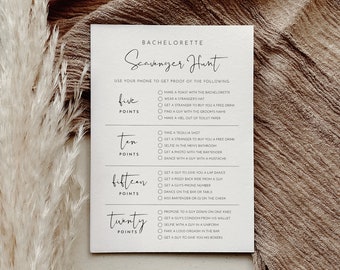 BACHELORETTE
Scavenger Hunt
USE YOUR PHONE TO GET PROOF OF THE FOLLOWING.
five
POINTS
MAKE A TOAST WITH THE BACHELORETTE
WEAR A STRANGER'S HAT
GET A STRANGER TO BUY YOU A FREE DRINK
FIND A GUY WITH THE GROOM'S NAME
MAKE A VEIL OUT OF TOILET PAPER
ten
POINTS
TAKE A TEQUILA SHOT
GET A STRANGER TO BUY YOU A FREE DRINK
SELFIE IN THE MEN'S BATHROOM
GET A PHOTO WITH THE BARTENDER
DANCE WITH A GUY WITH A MUSTACHE
fifteen
POINTS
GET A GUY TO GIVE YOU A LAP DANCE
GET A PIGGY BACK RIDE FROM A GUY
GET A GUY'S PHONE NUMBER
DANCE ON THE BAR OR TABLE
KISS BARTENDER OR DJ ON THE CHEEK
twenty
POINTS
PROPOSE TO A GUY DOWN ON ONE KNEE
GET A GUY'S CONDOM FROM HIS WALLET
SELFIE WITH A GUY IN A UNIFORM
FIND A LOUD ORGASM IN THE BAR
GET A GUY TO GIVE YOU HIS BOXERS